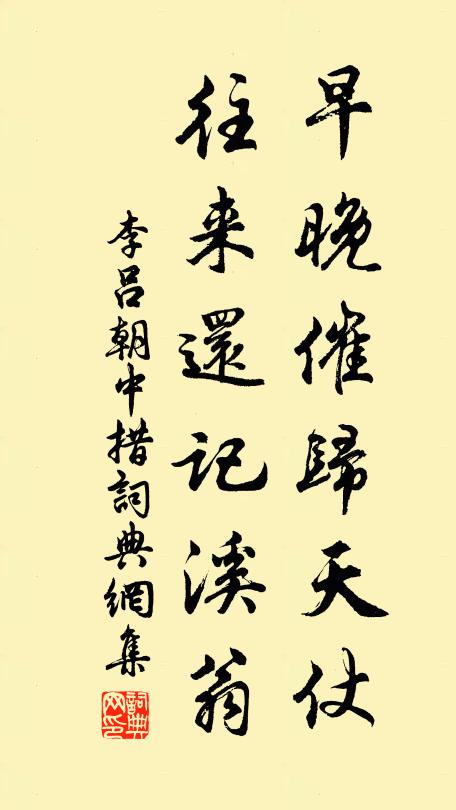 早晚催歸天仗
往来還記溪翁
李呂朝中措詞典網集
詞典网印